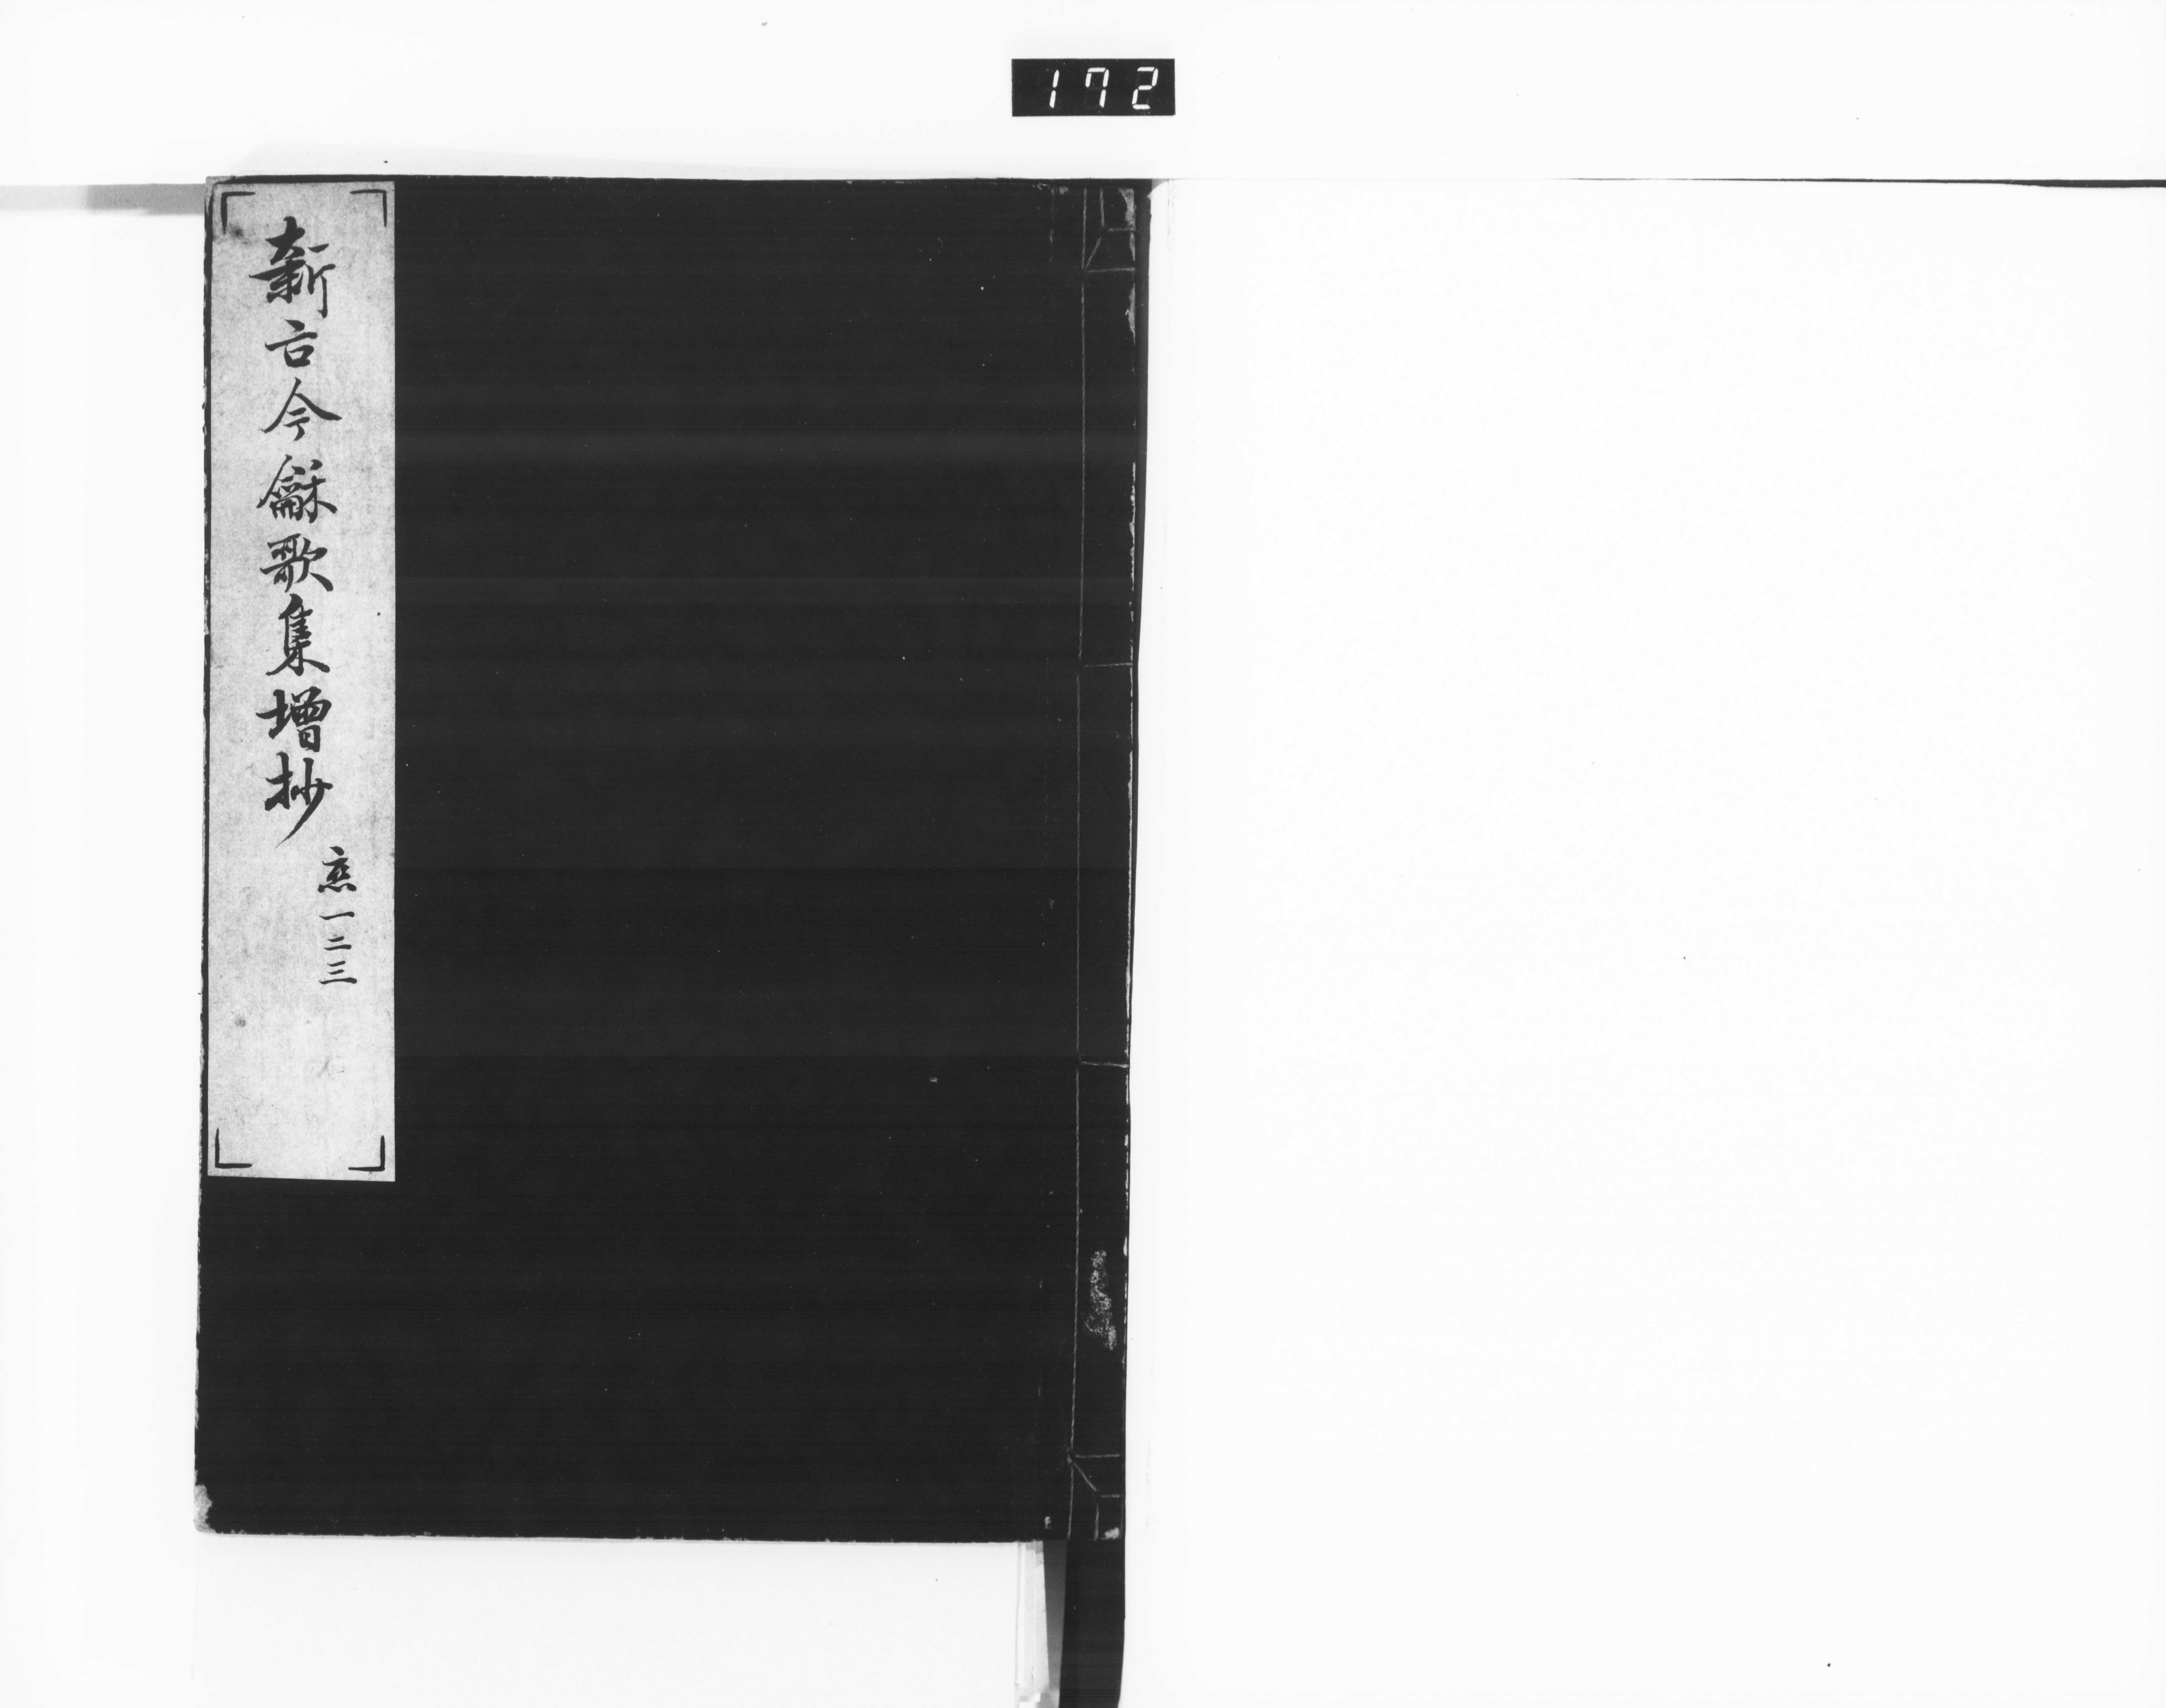 172
新古今龢歌集増抄
恋一二三